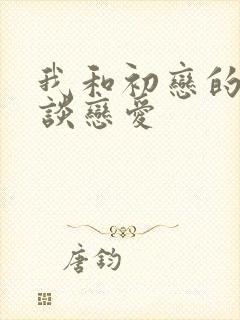 我和初戀的
談戀愛
唐鈞